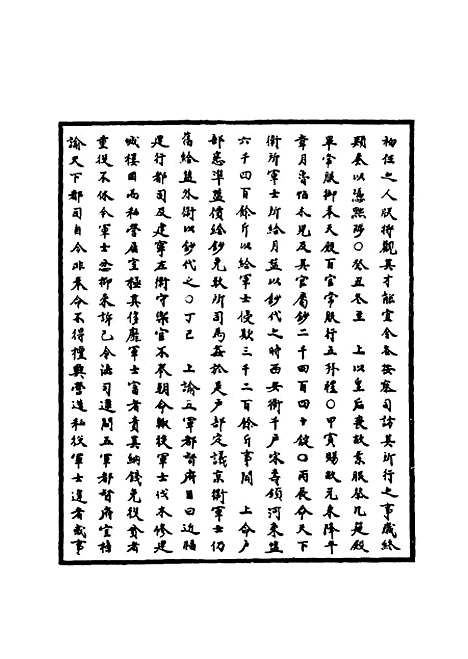 初任之人朕將觀其才能宜令各按察司訪其所行之事歲終
類奏以憑黜陟○癸丑冬至　上以皇后喪故素服祭几筵殿
畢常服御奉天殿百官常服行五拜禮○甲寅賜故元來降平
章月魯伯木兒及其官屬鈔二千四百四十錠○丙辰命天下
衛所軍士所給月鹽以鈔代之時西安衛千戶宋壽領河東鹽
六千四百餘斤以給軍士侵欺三千二百餘斤事聞　上命戶
部悉準鹽價給鈔免致所司為姦於是戶部定議京衛軍士仍
舊給鹽外衛以鈔代之○丁巳　上諭五軍都督府臣曰近福
建行都司及建寧左衛守禦官不奉朝命輒役軍士伐木修建
城樓因而私營居室極其侈靡軍士富者責其納錢免役貧者
重役不休令軍士忿抑來訴已令法司遣問五軍都督府宜榜
諭天下都司自今非奉命不得擅興營造私役軍士違者或事